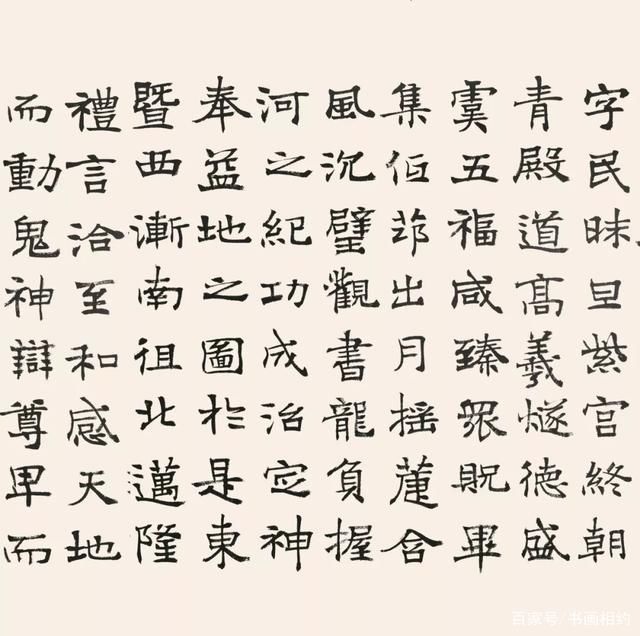 字民昧旦紫宮終朝
青殿道高羲燧德盛
虞五福咸臻眾貺畢
集出月搖萐含
風沉璧觀書龍負握
河之紀功成治定神
奉益地之圖於是東
暨西漸南徂北邁隆
禮言洽至和感天地
而動鬼神辯尊卑而
百家号/书画相约